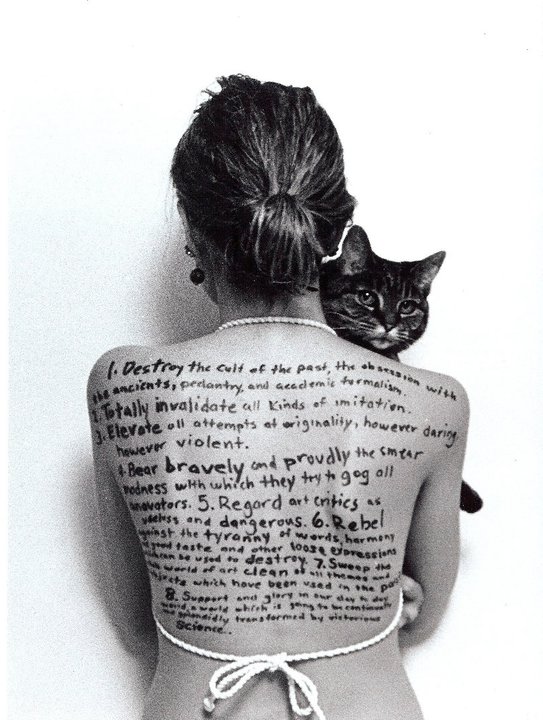 1. Destroy the cult of the past, the obsession with
the ancients, pedantry, and academic formalism.
2. Totally invalidate all kinds of imitation.
3. Elevate all attempts at originality, however daring
however violent.
4. Bear bravely and proudly the smear
madness with which they try to gag all
innovators. 5. Regard art critics as
useless and dangerous. 6. Rebel
against the tyranny of words, harmony
good taste and other loose expressions
can be used to destroy. 7. Sweep the
world of art clean of all themes and
which have been used in the past
8. Support and glory in our day to day
world, a world which is going to be continually
splendidly transformed by victorious
Science.